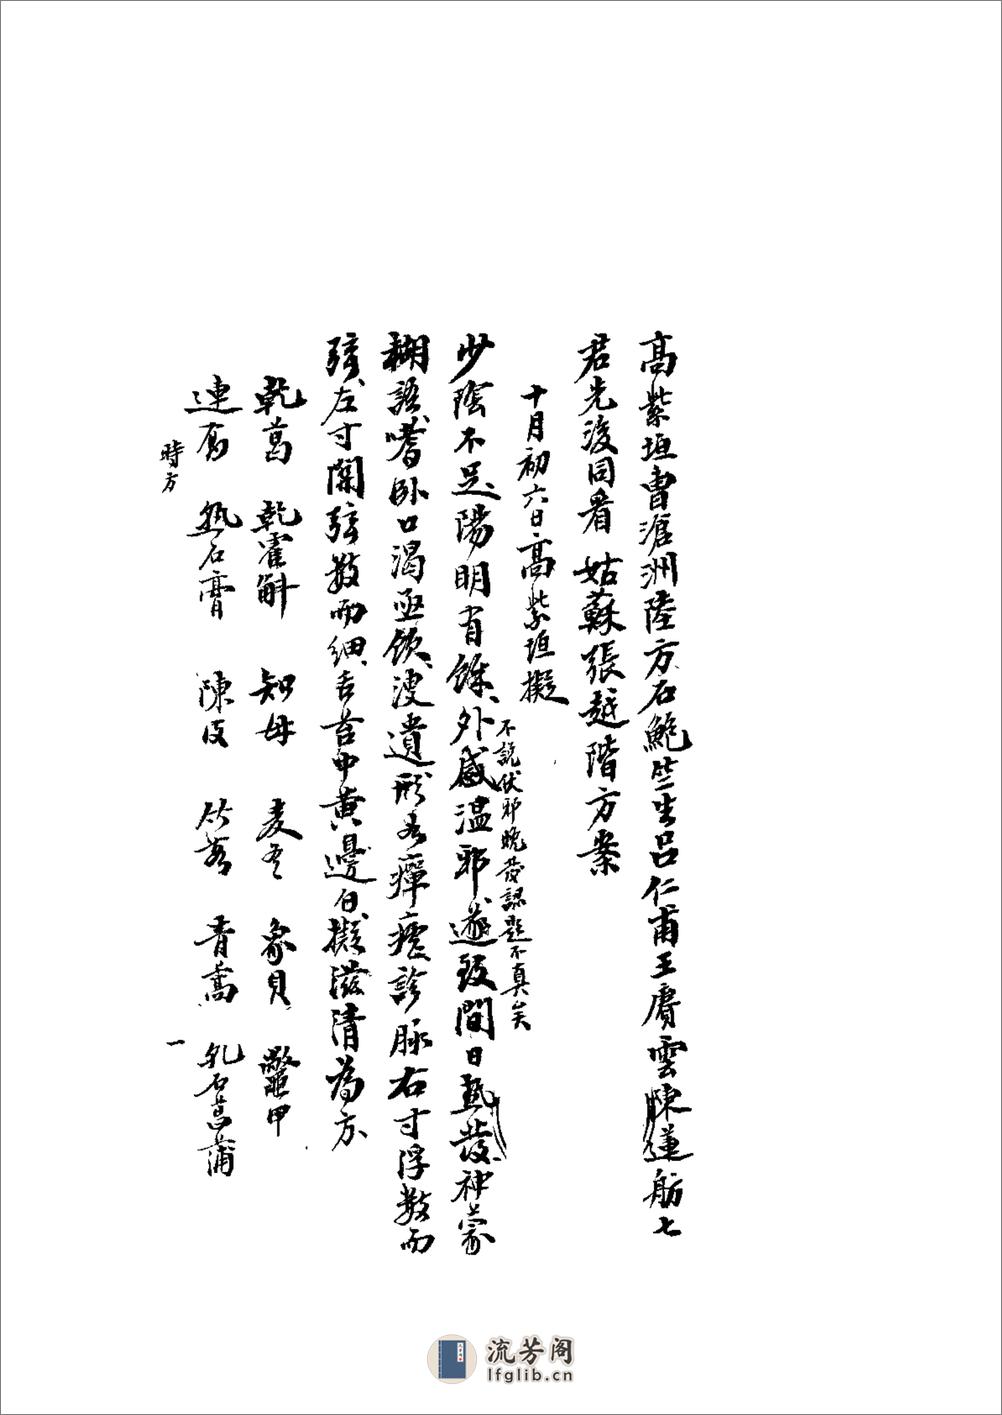 高紫垣曹滄洲陸方石鮑竺生呂仁甫王賡雲陳蓮舫七
君先後同看 姑蘇張越階方案
十月初六日高紫垣擬
不説伏邪晚發認題不真矣
少陰不足陽明有餘外感温邪遂致間日熱發神蒙
糊語嗜卧口渴亟飲溲遺形如癉瘧診脉右寸浮数而
弦左寸關弦数而細舌苔中黄邊白擬滋清為方
乾葛 乾霍斛 知母 麦冬 象貝 鱉甲
連翹 熟石膏 陳皮 竹茹 青蒿 乳石菖蒲
時方
一
流芳阁
lfglib.cn